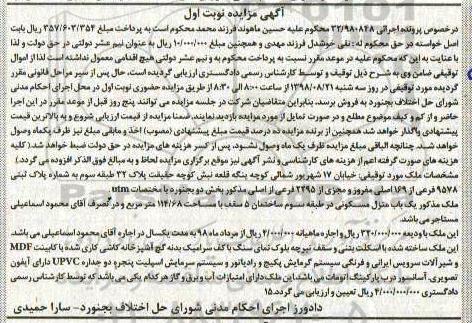 آگهی مزایده نوبت اول
در خصوص پرونده اجرائی ۳۲/۹۸۰۸۴۸ محکوم علیه حسین ماهوند فرزند محمد محکوم است به پرداخت مبلغ ۳۵۷/۶۰۳/۳۵۴ ریال بابت
اصل خواسته در حق محکوم له: نقی خوشدل فرزند مهدی و همچنین مبلغ ۱۰/۰۰۰/۰۰۰ ریال به عنوان نیم عشر دولتی در حق دولت و لذا
با عنایت به این که محکوم علیه در موعد مقرر نسبت به پرداخت محکوم به و نیم عشر دولتی هیچ اقدامی معمول نداشته است لذا از اموال
توقیفی ضامن وی به شرح ذیل توقیف و توسط کارشناس رسمی دادگستری ارزیابی گردیده است. حال پس از سیر مراحل قانونی مقرر
گردیده مورد توقیفی در روز سه شنبه ۱۳۹۸/۰۸/۲۱ از ساعت ۸:۰۰ الی ۸:۳۰ از طریق مزایده حضوری نوبت اول در محل اجرای احکام مدنی
شورای حل اختلاف بجنورد به فروش برسد. بنابراین متقاضیان شرکت در جلسه مزایده می توانند پنج روز قبل از موعد مقرر در این اجرا
حاضر و از کم و کیف موضوع مطلع و در صورت تمایل از مورد مزایده بازدید نمایند. ضمنا مزایده از قیمت ارزیابی شروع و به بالاترین قیمت
پیشنهادی واگذار خواهد شد همچنین از برنده مزایده ده درصد قیمت مبلغ پیشنهادی (مصوب) اخذ و مابقی مبلغ نیز ظرف یکماه وصول
خواهد شد. چنانچه الباقی مبلغ مزایده ظرف یک ماه وصول نشود، پس از کسر هزینه های مزایده در حق دولت ضبط خواهد شد.( کلیه
هزینه های صورت گرفته اعم از هزینه های کارشناسی و نشر آگهی نیز موقع برگزاری مزایده لحاظ و به مبالغ فوق الذکر افزوده می گردد.)
مشخصات ملک مورد توقیفی: خیابان ۱۷ شهریور شمالی کوچه پنگه قلعه نبش کوچه حقیقت پلاک ۳۲ طبقه سوم به شماره پلاک ثبتی
۹۵۷۸ فرعی از ۱۶۹ اصلی مفروز و مجزی از ۲۴۹۵ فرعی از اصلی مذکور بخش دو بجنورد با مختصات utm
ملک مذکور یک باب منزل مسکونی در طبقه سوم ساختمان ۵ سقف با مساحت ۱۱۴/۶۸ متر مربع و در تصرف آقای محمود اسماعیلی
مستاجر می باشد.
این ملک با ودیعه ۲۲۰/۰۰۰/۰۰۰ ریال و اجاره ماهیانه ۴/۰۰۰/۰۰۰ ریال از مرداد ماه ۹۸ به مدت یکسال در اجاره آقای محمود اسماعیلی می باشد.
این ملک ساخته شده با اسکلت بتنی و سقف تیرچه بلوک نمای سنگ با کف سرامیک بدنه گچ آشپزخانه کاشی کاری شده با کابینت MDF
و شیر آلات سرویس ایرانی و فرنگی سیستم گرمایش پکیج و رادیاتور و سیستم سرمایش اسپلیت پنجره دو جداره UPVC دارای آیفون
تصویری، آسانسور درب پارکینگ اتومات می باشد. این ملک دارای امتیازات آب و برق و گاز هر کدام یکی می باشد که توسط کارشناس رسمی
دادگستری ۴/۰۰۰/۰۰۰/۰۰۰ ریال تعیین و ارزیابی می گردد.۱۵
دادورز اجرای احکام مدنی شورای حل اختلاف بجنورد- سارا حمیدی